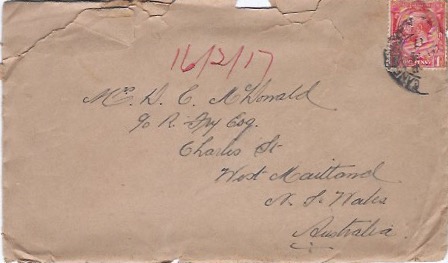 16/2/17
Mrs. D. C. McDonald
c/o R. Fry Esq.
Charles St
West Maitland
N. S. Wales
Australia.